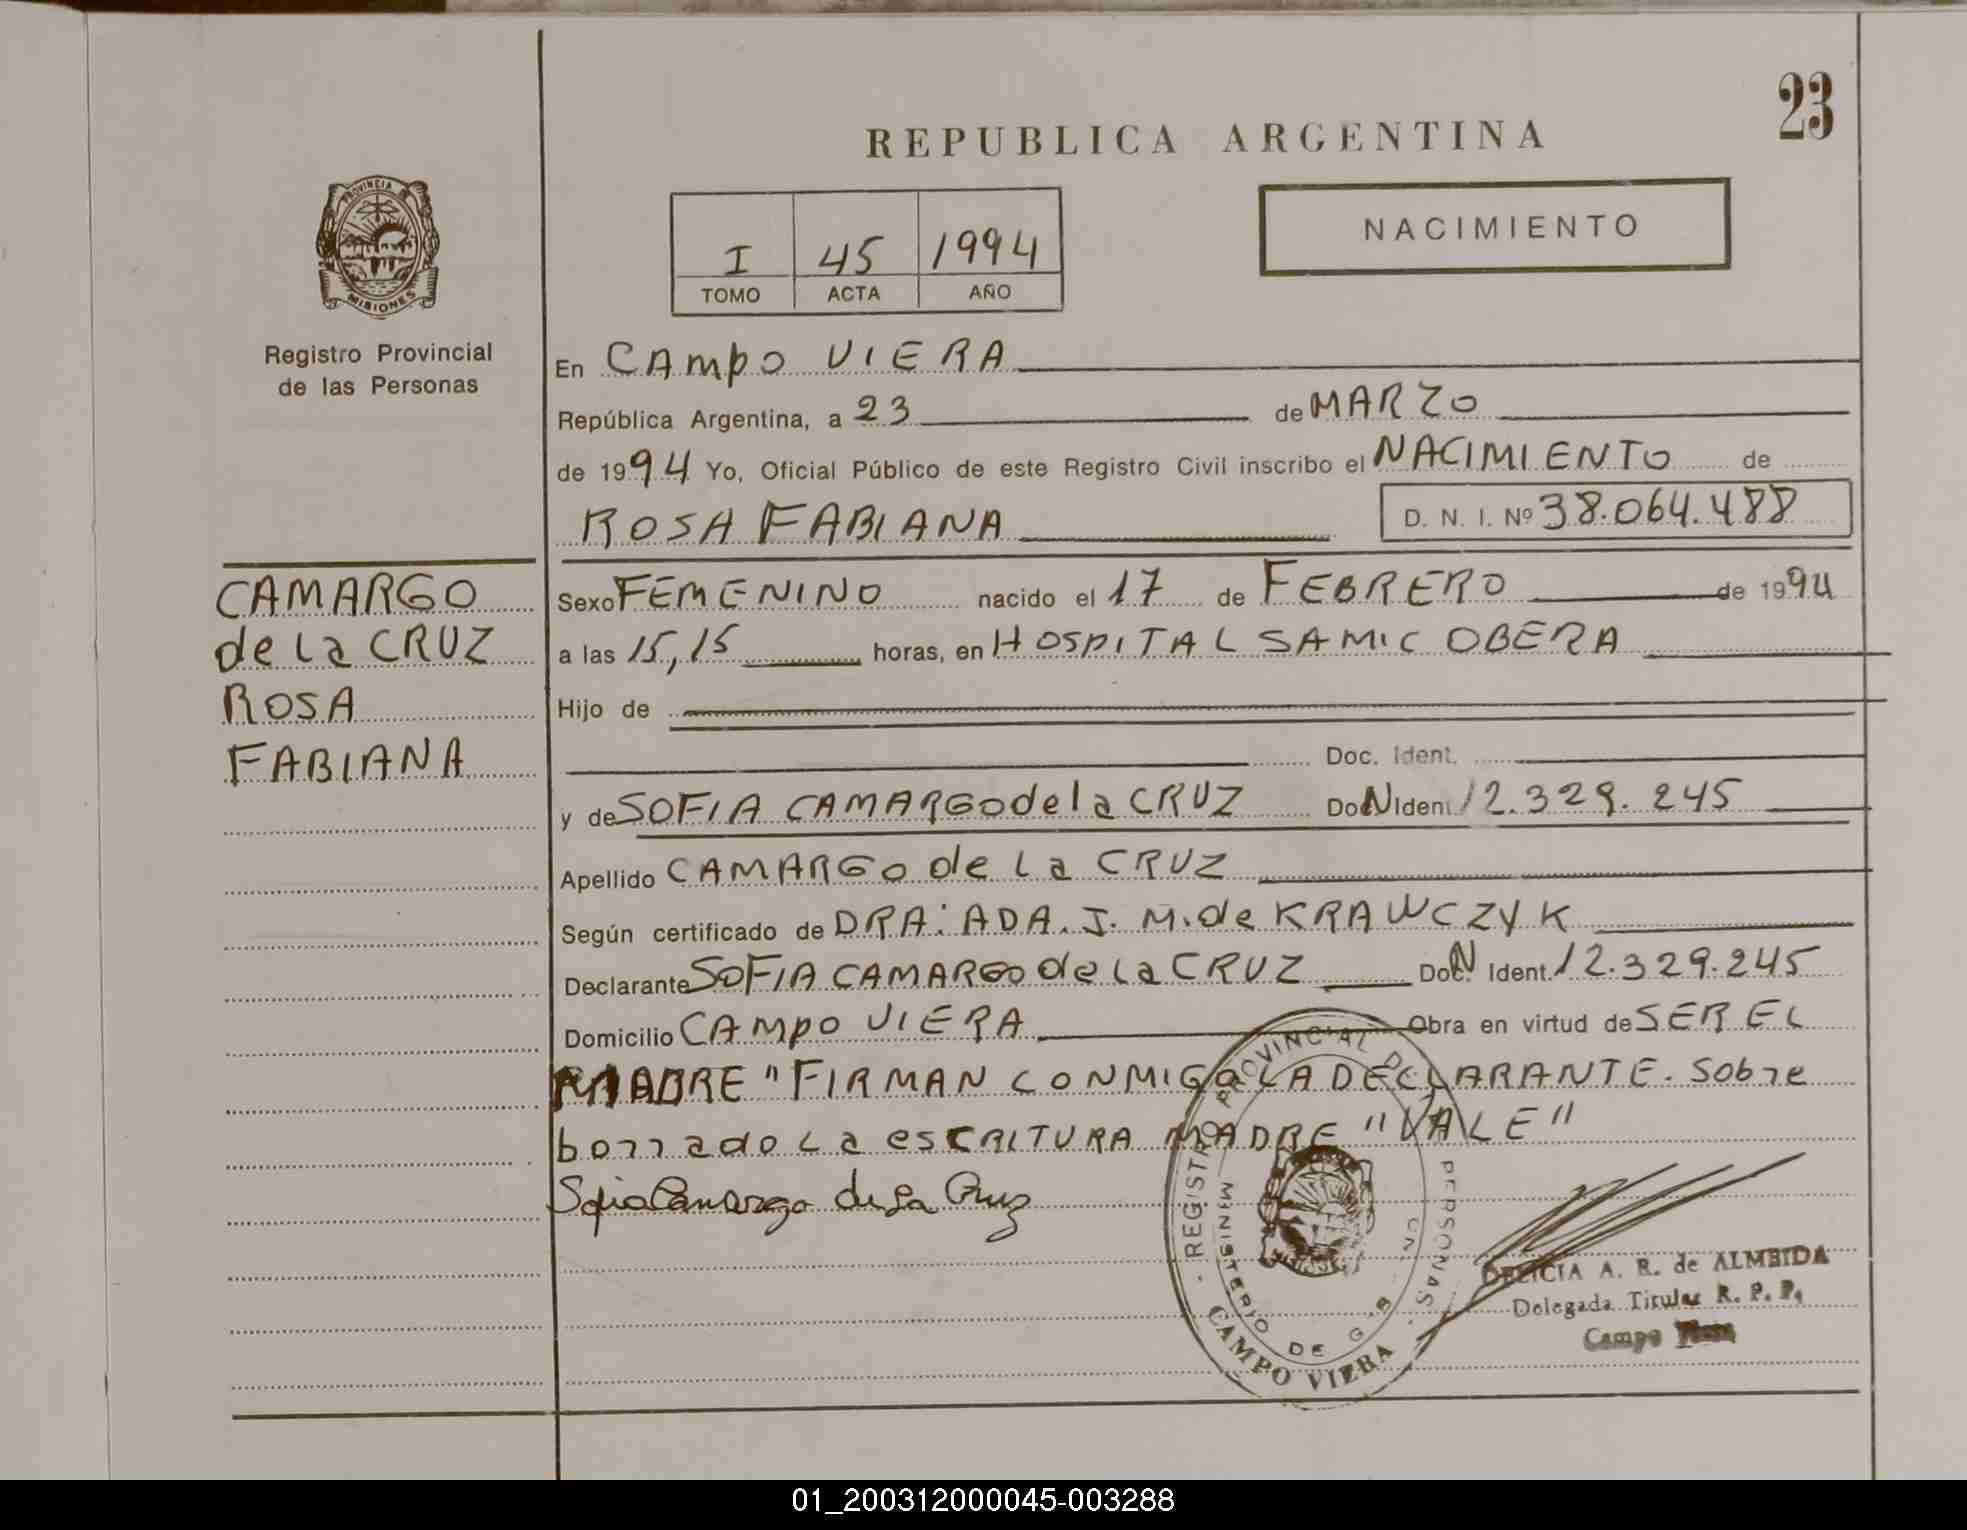 23
REPUBLICA ARGENTINA
NACIMIENTO
I 45 1994
TOMO ACTA AÑO
PROVINCIA
MISIONES
Registro Provincial
de las Personas
CAMARGO
de La CRUZ
ROSA
FABIANA
En CAMPO VIERA
República Argentina, a 23 de MARZO
de 1994 Yo, Oficial Público de este Registro Civil inscribo el NACIMIENTO de
ROSA FABIANA D. N. I. Nº 38.064.488
Sexo FEMENINO nacido el 17 de FEBRERO de 1994
a las 15,15 horas, en HOSPITAL SAMIC OBERA
Hijo de
Doc. Ident.
y de SOFIA CAMARGO de la CRUZ Doc. N Ident. 12.329.245
Apellido CAMARGO de La CRUZ
Según certificado de DRA: ADA. J. M. de KRAWCZYK
Declarante SOFIA CAMARGO de La CRUZ Doc. N Ident. 12.329.245
Domicilio CAMPO VIERA Obra en virtud de SER EL
MADRE "FIRMAN CONMIGO LA DECLARANTE. Sobre
borrado La esCRITURA MADRE "VALE"
Sofia Camargo de La Cruz
REGISTRO PROVINCIAL DE PERSONAS
MINISTERIO DE
CAMPO VIERA
DELICIA A. R. de ALMEIDA
Delegada Titular R. P. P.
Campo
01_200312000045-003288